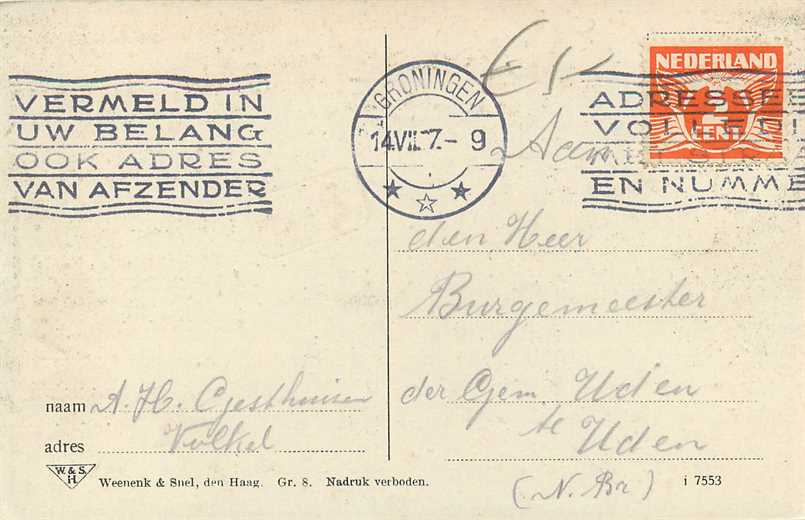 VERMELD IN
UW BELANG
OOK ADRES
VAN AFZENDER
GRONINGEN
14 VII 7.- 9
€1,-
NEDERLAND
2
CENT
ADRESSEE
VOLLEDI
EN NUMME
Aan
den Heer
Burgemeester
der Gem Uden
te
Uden
(N. Br)
naam A. H. Egesthuisen
adres Volkel
W. & S.
H.
Weenenk & Snel, den Haag. Gr. 8. Nadruk verboden.
i 7553